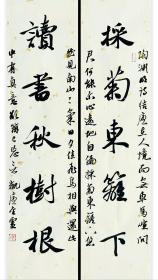 陶淵明詩結廬在人境而無車馬喧問
採菊東籬下
君何能爾心遠地自偏採菊東籬下悠
然見南山々氣日夕佳飛鳥相與還此
讀書秋樹根
中有真意欲辯已忘言